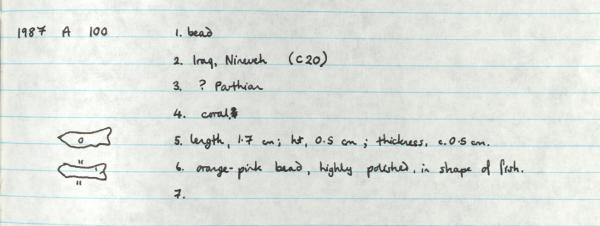 1987 A 100 1. bead
2. Iraq, Nineveh (C20)
3. ? Parthian
4. coral
5. length, 1.7 cm; ht, 0.5 cm; thickness, c. 0.5 cm.
6. orange-pink bead, highly polished, in shape of fish.
7.